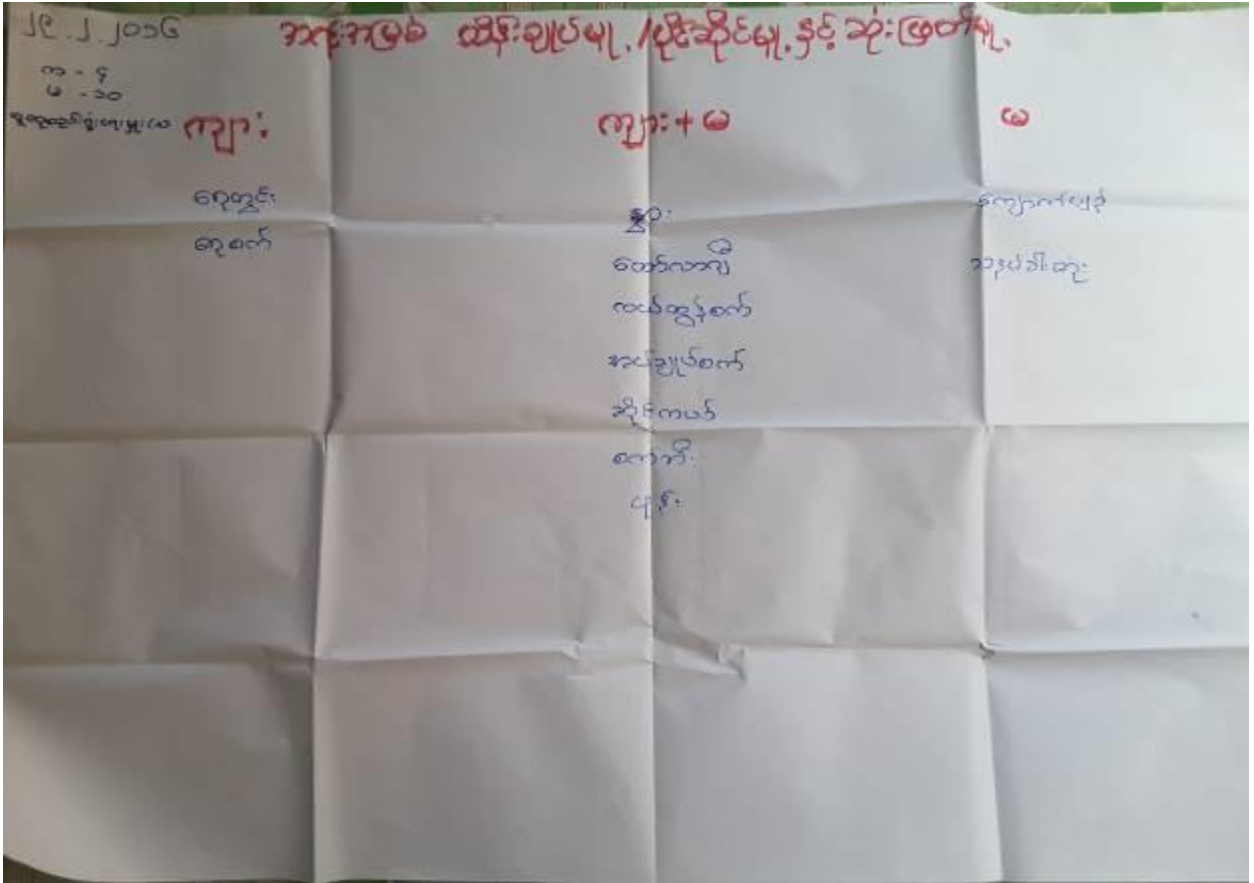 ၂၉.၂.၂၀၁၆
အရင်းအမြစ် ထိန်းချုပ်မှု့/ပိုင်ဆိုင်မှု့နှင့် ဆုံးဖြတ်မှု့
က - ၄
မ - ၁၀
ကျား
ကျား + မ
မ
ရေတွင်း
ရေစက်
နွား
ထော်လာဂျီ
လယ်ထွန်စက်
အပ်ချုပ်စက်
ဆိုင်ကယ်
စက်ဘီး
ပန်း
ကျောက်ပျဉ်
သနပ်ခါးတုံး